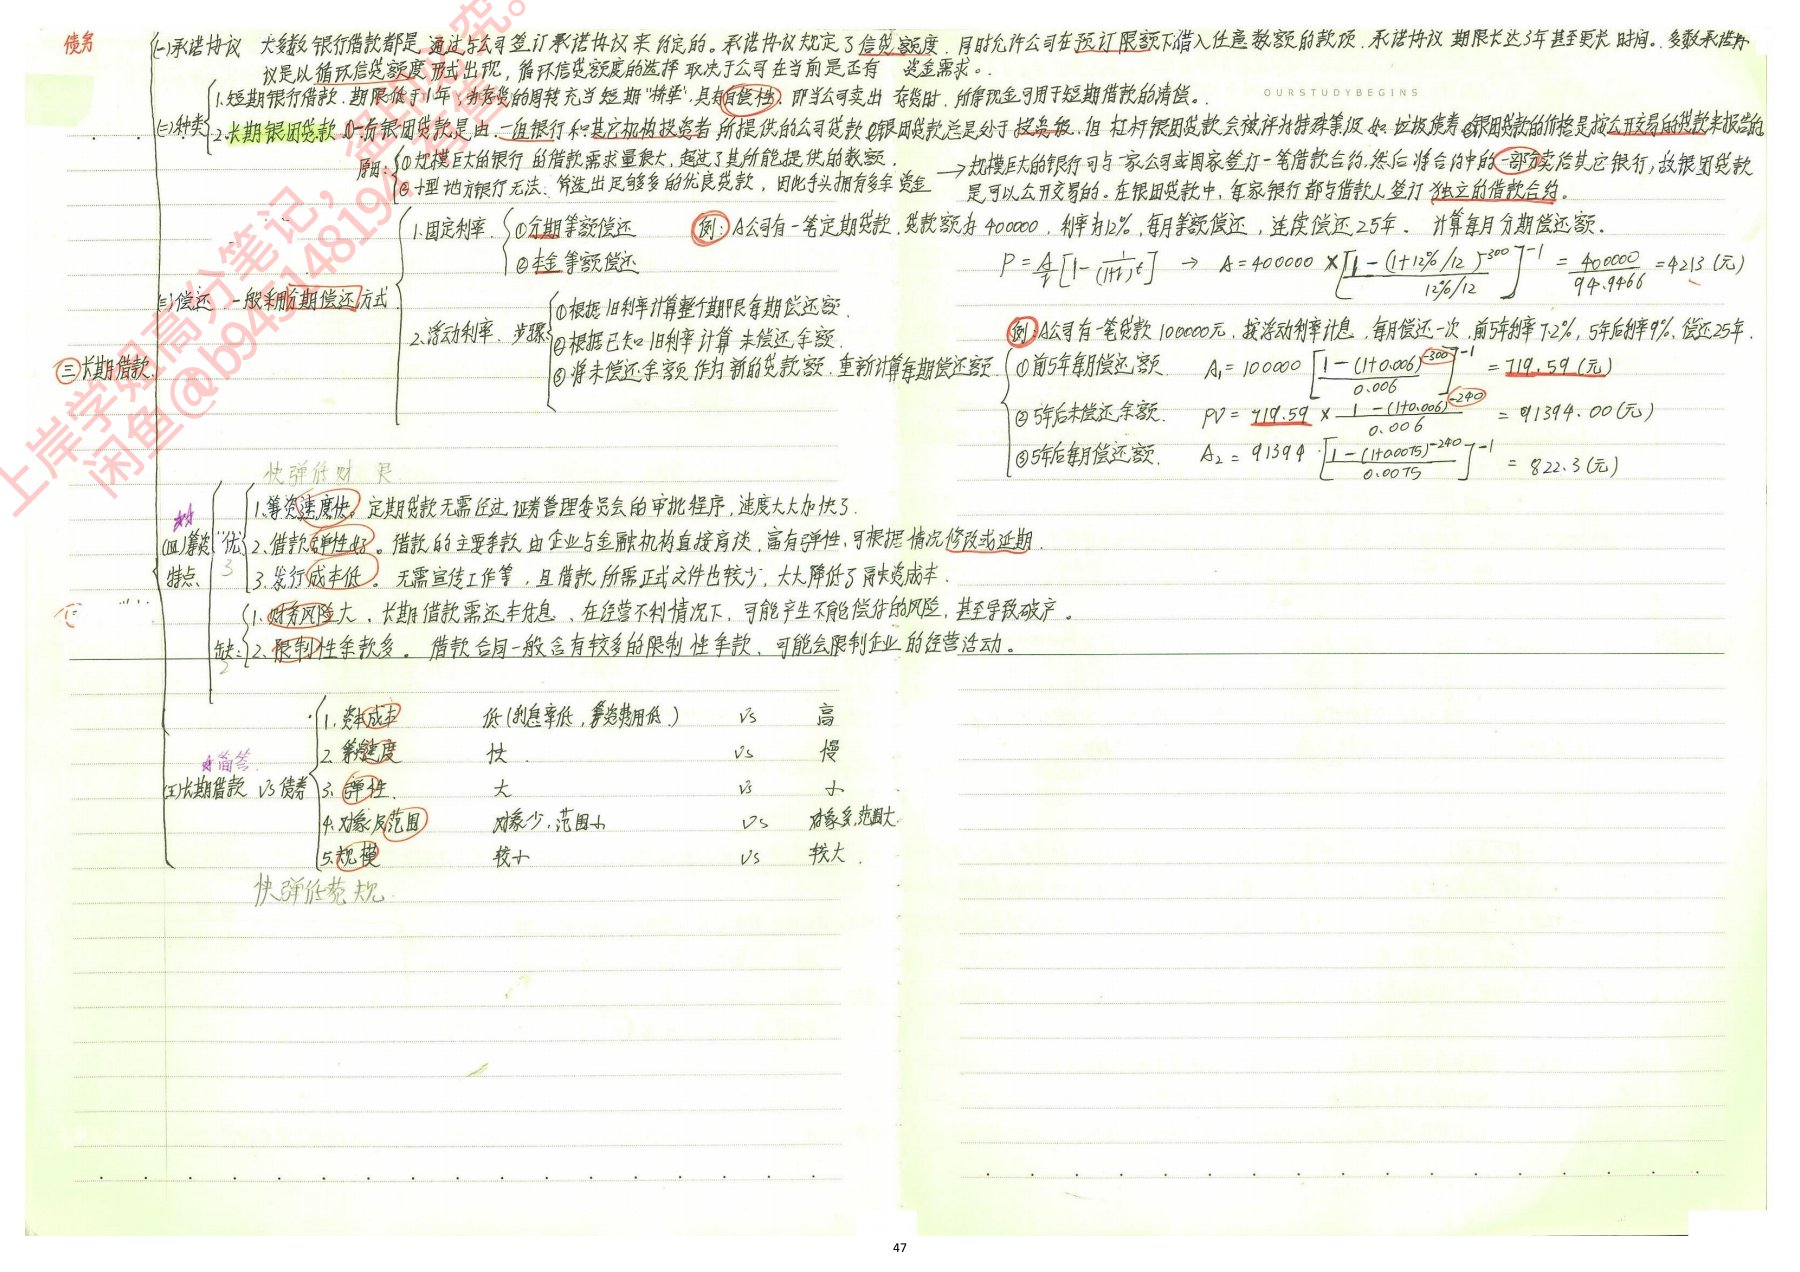 债务
三 长期借款
(一)承诺协议 大多数银行借款都是通过与公司签订承诺协议来约定的。承诺协议规定了信贷额度,同时允许公司在预订限额下借入任意数额的款项.承诺协议期限长达3年甚至更长时间。多数承诺协
议是以循环信贷额度形式出现,循环信贷额度的选择取决于公司在当前是否有 资金需求。
OURSTUDYBEGINS
(二)种类
1.短期银行借款.期限低于1年,为存货的周转充当短期"桥梁".具有自偿性.即当公司卖出存货时,所得现金可用于短期借款的清偿。
2.长期银团贷款 ①一份银团贷款是由一组银行和其它机构投资者所提供的公司贷款②银团贷款总是处于投资级,但杠杆银团贷款会被评为特殊等级如垃圾债券③银团贷款的价格是按公开交易的贷款来报告的
原因:
①规模巨大的银行的借款需求量很大,超过了其所能提供的数额.
②小型地方银行无法筛选出足够多的优良贷款,因此手头拥有多余资金
→规模巨大的银行可与一家公司或国家签订一笔借款合约.然后将合约中的一部分卖给其它银行;故银团贷款
是可以公开交易的。在银团贷款中,每家银行都与借款人签订独立的借款合约。
(三)偿还 一般采用分期偿还方式
1.固定利率.
①分期等额偿还
②本金等额偿还
例:A公司有一笔定期贷款,贷款额为400000,利率为12%,每月等额偿还,连续偿还25年. 计算每月分期偿还额.
P=A/r[1-1/(1+r)^t] → A=400000×[1-(1+12%/12)^-300/12%/12]^-1=400000/94.9466=4213(元)
2.浮动利率.步骤
①根据旧利率计算整个期限每期偿还额.
②根据已知旧利率计算未偿还余额.
③将未偿还余额作为新的贷款额.重新计算每期偿还额
例 A公司有一笔贷款100000元,按浮动利率计息,每月偿还一次,前5年利率7.2%,5年后利率9%.偿还25年.
①前5年每月偿还额 A₁=100000[1-(1+0.006)^-300/0.006]^-1=719.59(元)
②5年后未偿还余额. PV=719.59×1-(1+0.006)^-240/0.006=91394.00(元)
③5年后每月偿还额. A₂=91394·[1-(1+0.0075)^-240/0.0075]^-1=822.3(元)
快弹低财 限
(四)筹资特点、
优 3
1.筹资速度快.定期贷款无需经过证券管理委员会的审批程序,速度大大加快了.
2.借款弹性好。借款的主要条款由企业与金融机构直接商谈,富有弹性,可根据情况修改或延期.
3.发行成本低。无需宣传工作等,且借款所需正式文件也较少,大大降低了融资成本.
缺: 2
1.财务风险大、长期借款需还本付息、在经营不利情况下、可能产生不能偿付的风险,甚至导致破产。
2、限制性条款多。借款合同一般含有较多的限制性条款、可能会限制企业的经营活动。
简答.
(五)长期借款 VS债券
1.资本成本 低(利息率低,筹资费用低.) VS 高
2.筹资速度 快 VS 慢
3.弹性. 大 VS 小
4.对象及范围 对象少,范围小 VS 对象多,范围大
5.规模 较小 VS 较大
快弹低范规.
上岸学姐高分笔记,
闲鱼@b94514819
盗印必究。
47